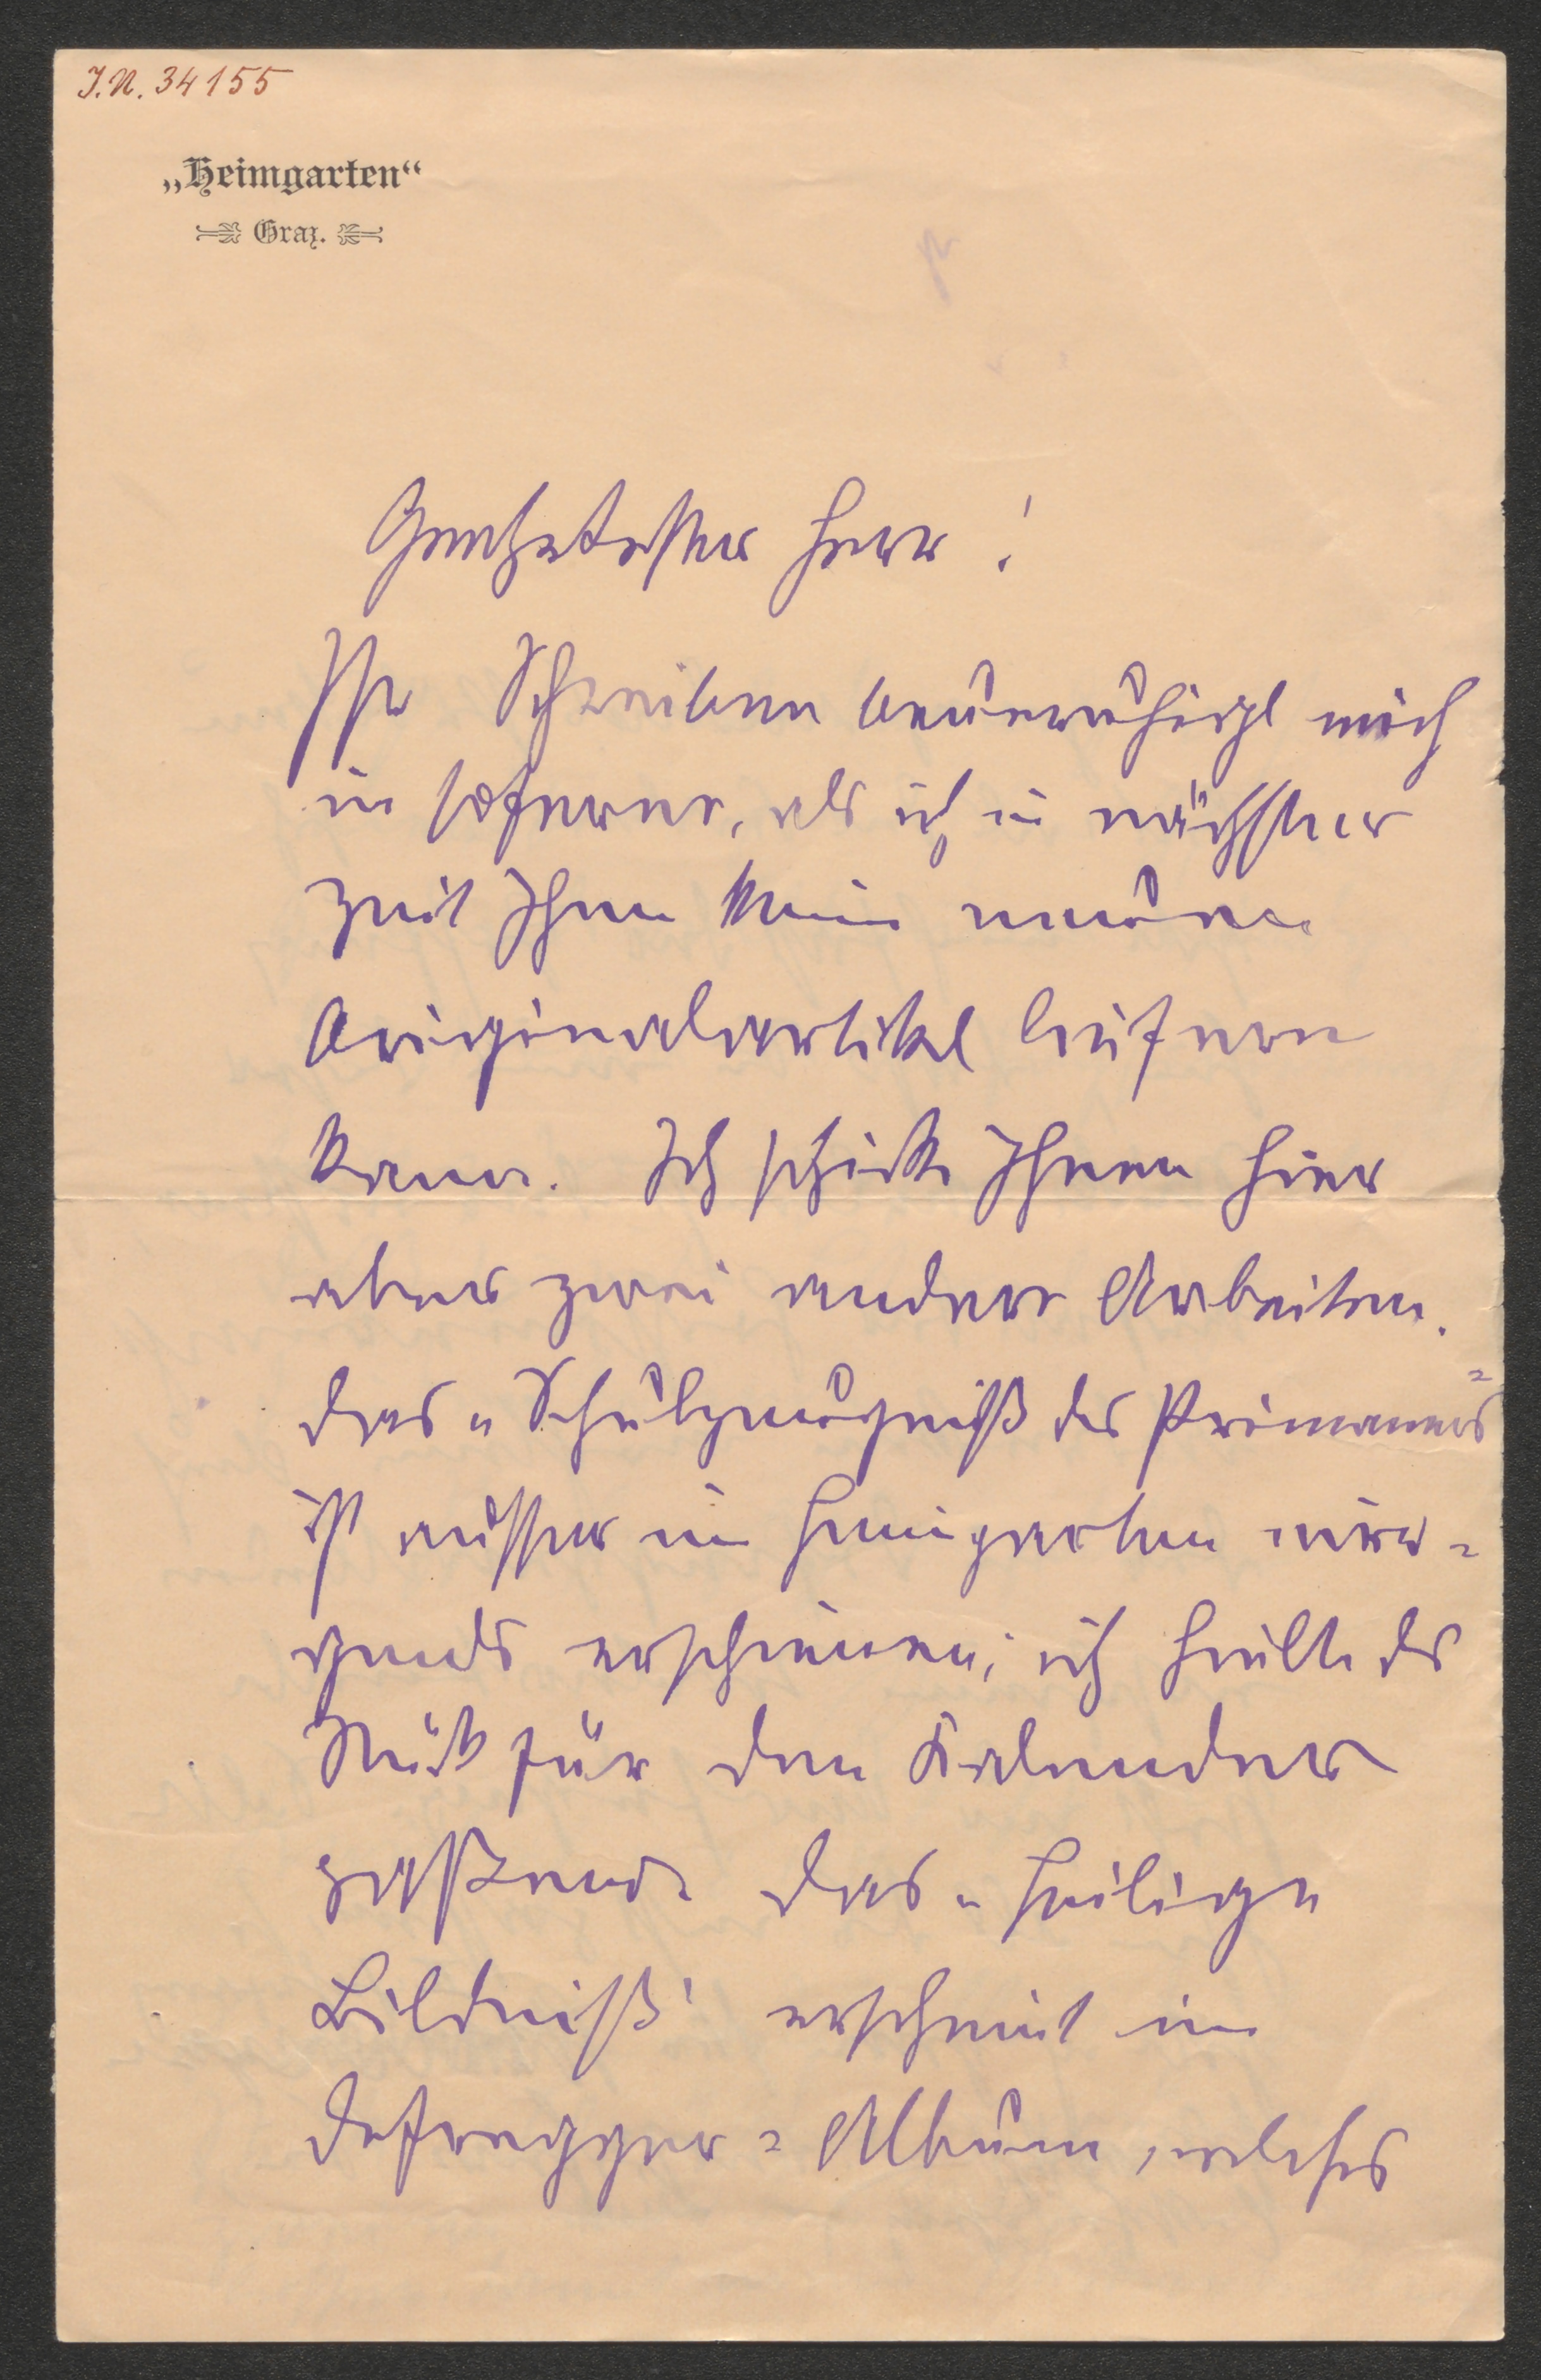 J.N. 34155
„Heimgarten“
Graz.
Geehrtester Herr!
Ihr Schreiben beunruhigt mich
in soferne, als ich in nächster
Zeit Ihnen keine neuen
Originalartikel liefern
kann. Ich schicke Ihnen hier
aber zwei andere Arbeiten.
Das „Schulzeugniß des Primaners“
ist ausser im Heimgarten nir-
gends erschienen; ich hielte das
Stück für den Kalender
passend. Das „heilige
Bildniß“ erscheint im
Defregger-Album, welches